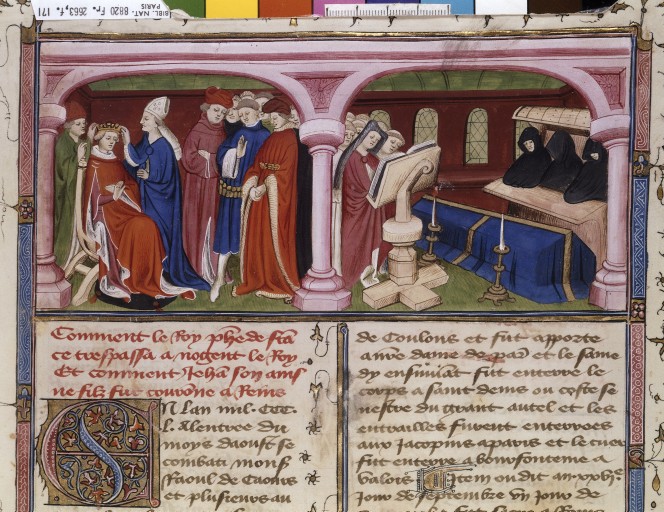 BIBL. NAT. 8820 Fr. 2663, f. 171
PARIS
Comment le Roy phe de fra
ce trespassa a nogent le Roy
Et comment Jehan son ains
ne filz fut couronne a Reins
En lan mil. CCC.
L. A lentree du
moys daoust se
combati mons
Raoul de Caours
et plusieurs au
de Coulons et fut apporte
a nre dame de paris et le same
dy ensuivant fut enterre le
corps a saint denis ou coste se
nestre du grant autel et les
entrailles furent enterrees
aux Jacopins a paris et le cuer
fut enterre a bonsfonteme a
Valois Item ou dit an xxvie
Jour de septembre vn Jour de